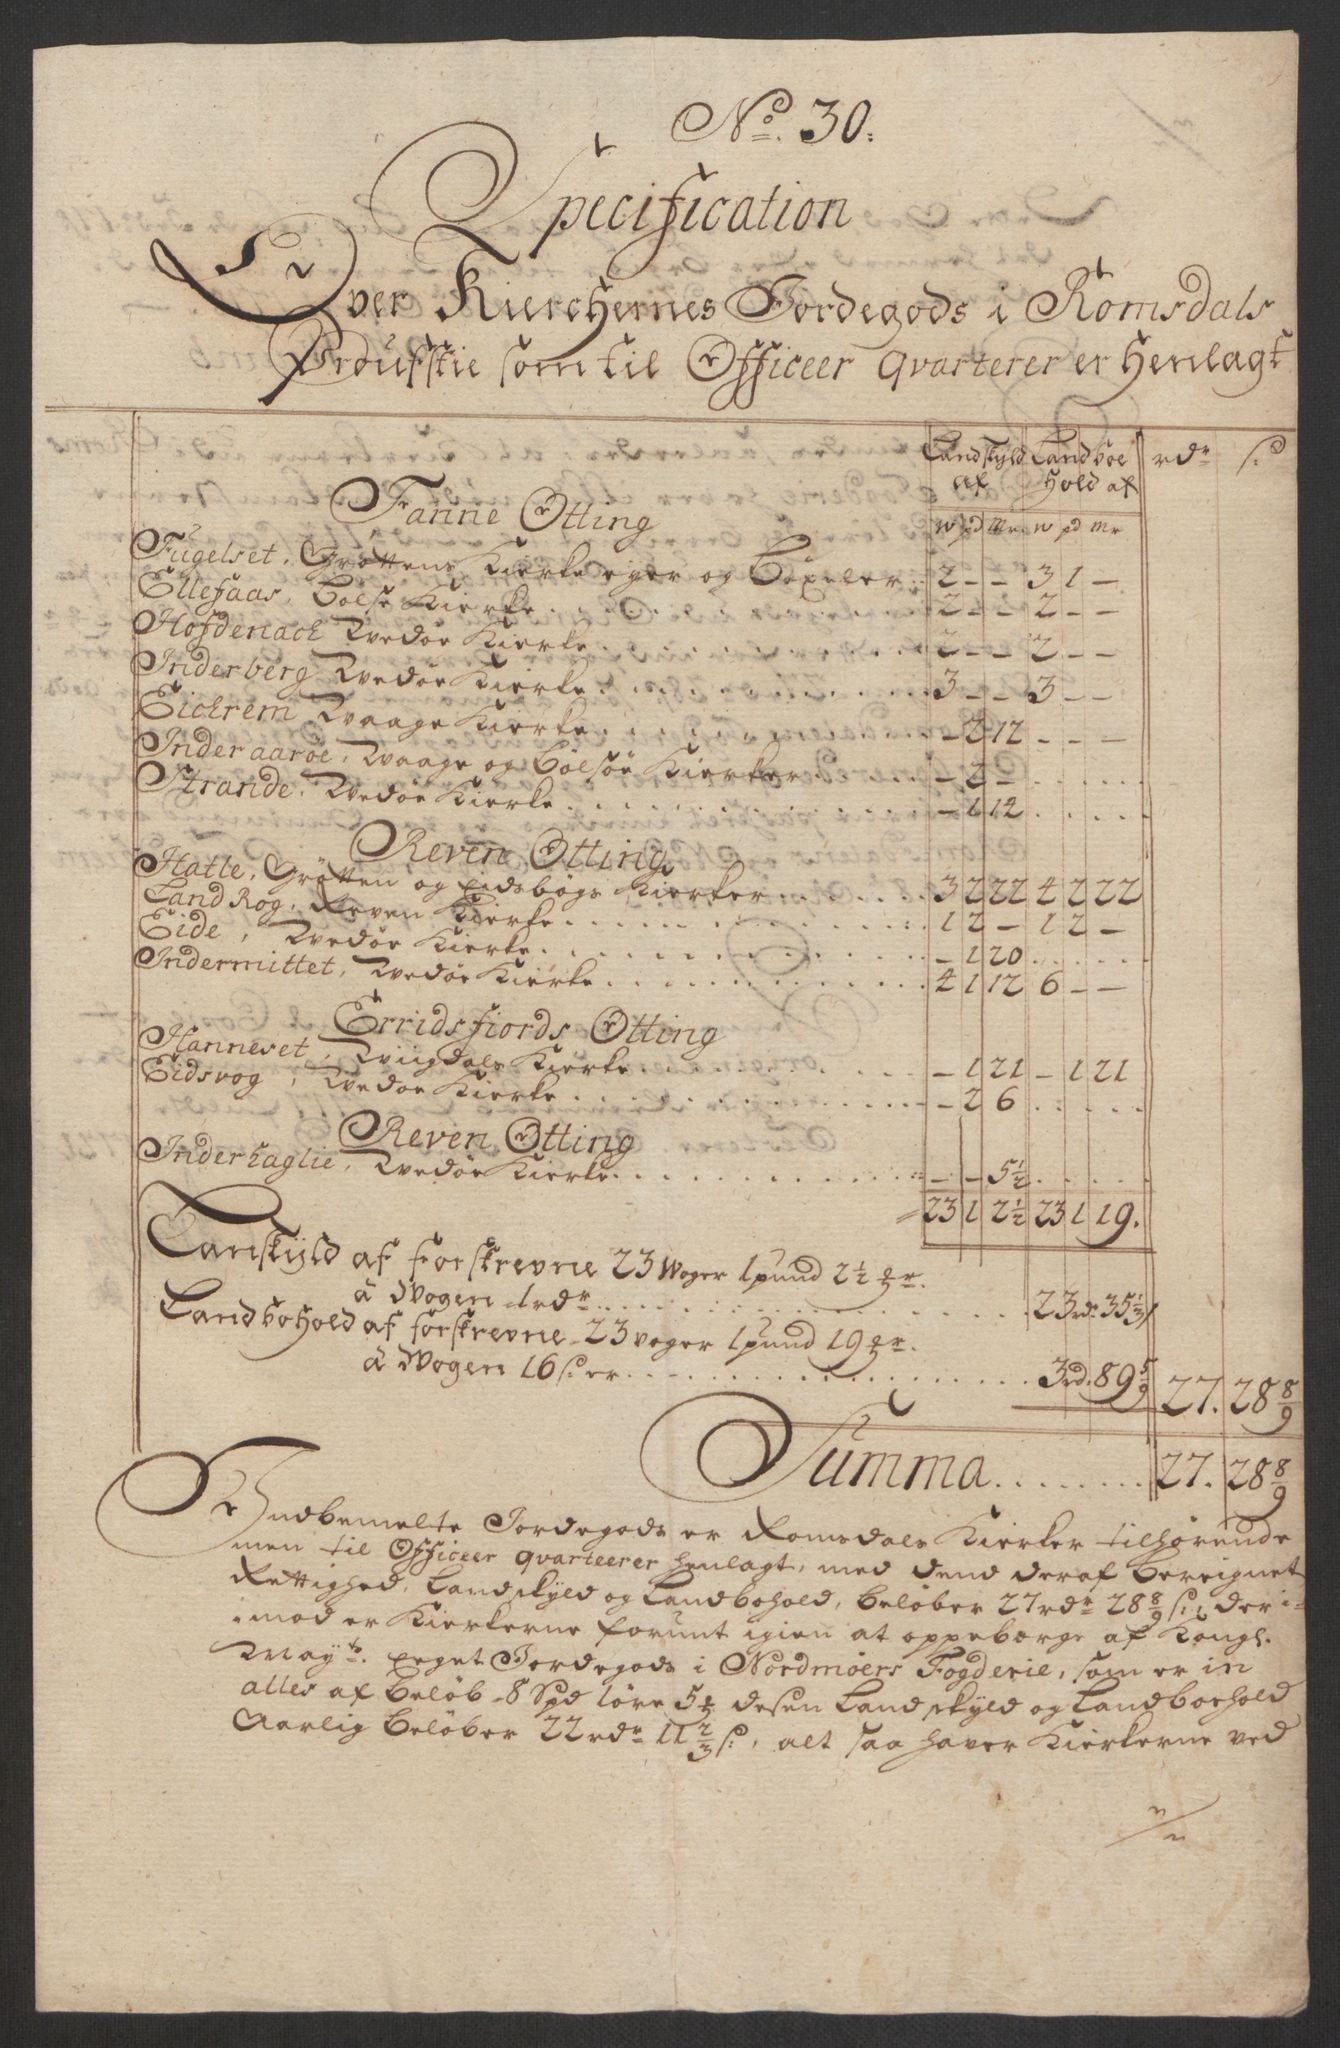 No. 30.
Specification
Over Kierchernes Jordegods i Romsdals
Proufstie som til Officeer qvarterer er henlagt
Landskyld Landboe rdr ß
af Hold af
Fanne Otting
w pd mr w pd mr
Fugelset, Grøttens Kierke eyer og Böxeler 2 – – 3 1 –
Ellefsaas, Bolsø Kierke 2 – – 2 – –
Hofdenach Wedøe Kierke 2 – – 2 – –
Inderberg Wedøe Kierke 3 – – 3 – –
Eichrem Waage Kierke – 2 12 – – –
Inderaarøe, Waage og Bolsøe Kierker – 2 –
Strande, Wedøe Kierke – 1 12
Reven Otting
Hatle, Grøtten og Eidsbøgs Kierker 3 2 22 4 2 22
Land Rog, Reven Kierke 1 2 – 1 2 –
Eide, Wedøe Kierke – 1 20
Indermittet, Wedøe Kierke 4 1 12 6 – –
Erridsfiords Otting
Hanneset, Wiigdals Kierke – 1 21 – 1 21
Eidsvog, Wedøe Kierke – 2 6
Reven Otting
Inderhaglie, Wedøe Kierke – – 5½
23 1 2½ 23 1 19.
Lanskyld af forskrevne 23 Woger 1 pund 2½ mr.
à Wogen 1 rdr 23 rdr 35⅓
Landbohold af forskrevne 23 voger 1 pund 19 mr.
à Wogen 16 ß er 3 rd. 89 5/9 27. 28 8/9
Summa 27. 28 8/9
Indbemelte Jordegods er Romsdals Kierker tilhørende
men til Officeer qvarteerer henlagt, med dend deraf bereignet
Rettighed, Landskyld og Landbohold, beløber 27 rdr 28 8/9 ß, der i-
imod er Kierkerne forunt igien at oppebærge af Kongl.
Mayts. eeget Jordegods i Nordmøers Fogderie, som er in
alles af beløb 8 Spd løre desen Landskyld og Landboehold
Aarlig beløber 22 rdr 11 2/3 ß, alt saa haver Kierkerne ved